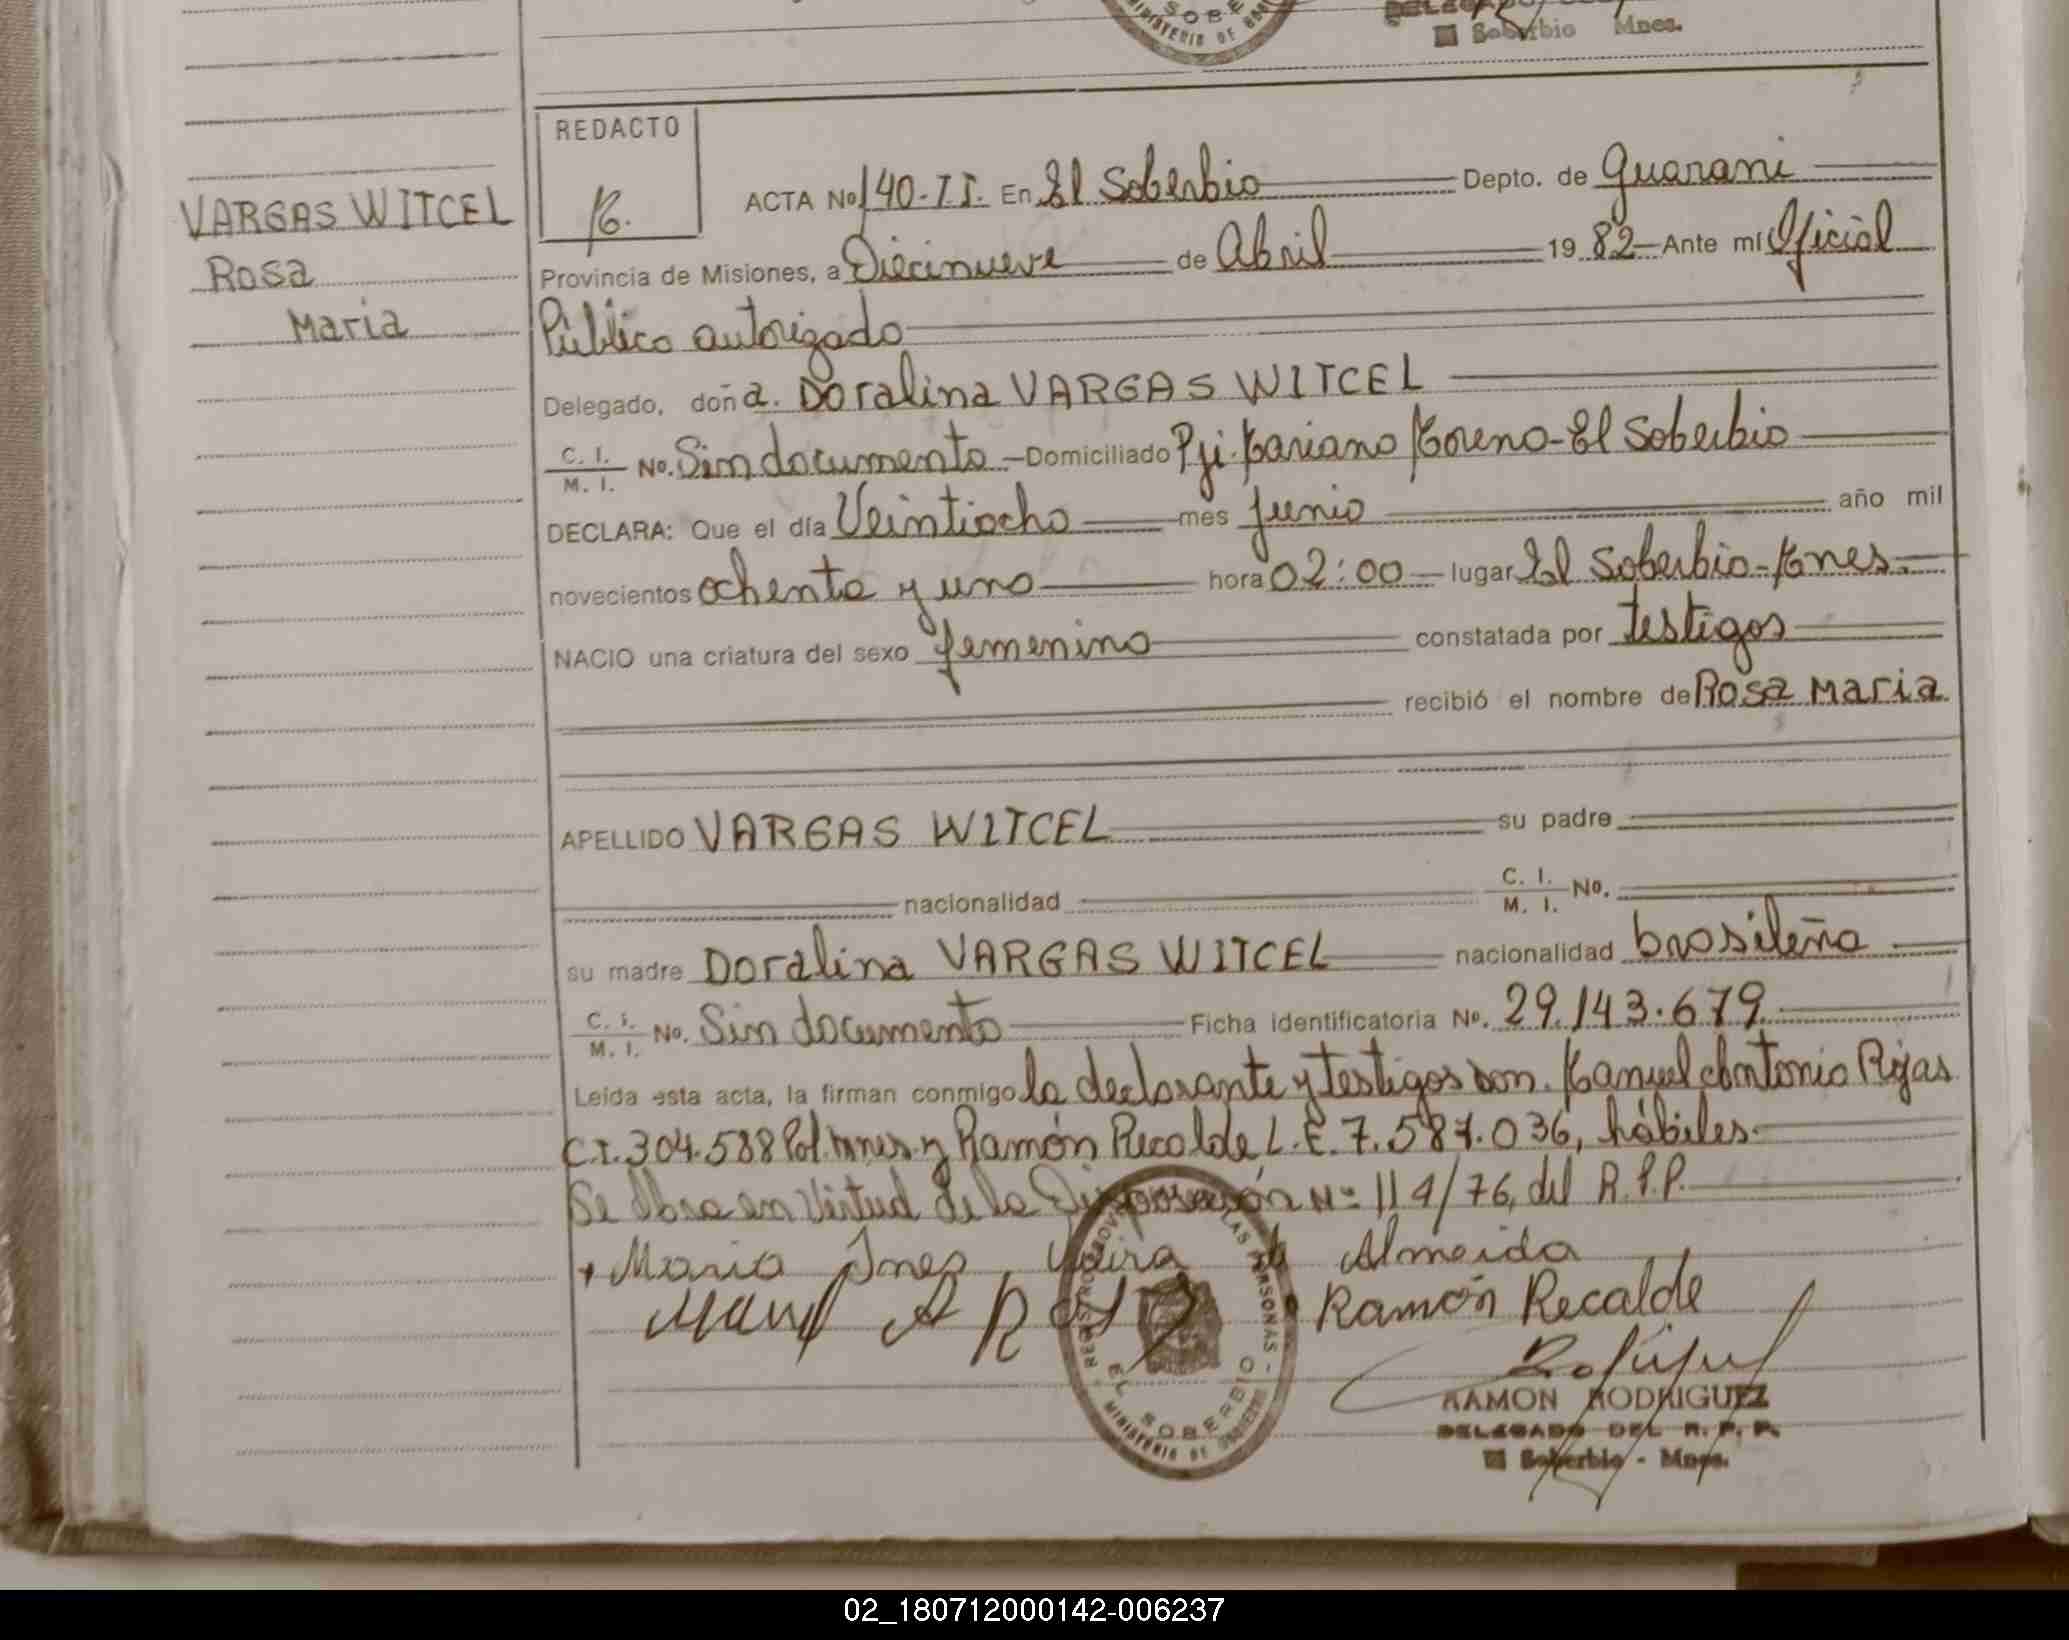 SOBE
MINISTERIO DE GOB
Soberbio Mnes.
REDACTO
ACTA No 140-II. En El Soberbio Depto. de Guarani
VARGAS WITCEL
Rosa
Maria
Provincia de Misiones, a Diecinueve de Abril 1982 Ante mi Oficial
Público autorizado
Delegado, doña. Doralina VARGAS WITCEL
C. I. M. I. No. Sin documento - Domiciliado Pji. Mariano Moreno - El Soberbio
DECLARA: Que el día Veintiocho mes Junio año mil
novecientos ochenta y uno hora 02:00 lugar El Soberbio - Mnes.
NACIO una criatura del sexo femenino constatada por testigos
recibió el nombre de Rosa Maria
APELLIDO VARGAS WITCEL su padre
nacionalidad C. I. M. I. No.
su madre Doralina VARGAS WITCEL nacionalidad brasileña
C. I. M. I. No. Sin documento Ficha identificatoria No. 29.143.679
Leída esta acta, la firman conmigo la declarante y testigos don. Manuel Antonio Rojas
C.I. 304.588 Pol. Mnes. y Ramón Recalde L.E. 7.587.036, hábiles.
Se Obra en Virtud de la Disposición Nº 114/76, del R.P.P.
Maria Ines de Almeida
Ramón Recalde
LAS PERSONAS
EL SOBERBIO
MINISTERIO DE
RAMON RODRIGUEZ
DELEGADO DEL R. P. P.
El Soberbio - Mnes.
02_180712000142-006237